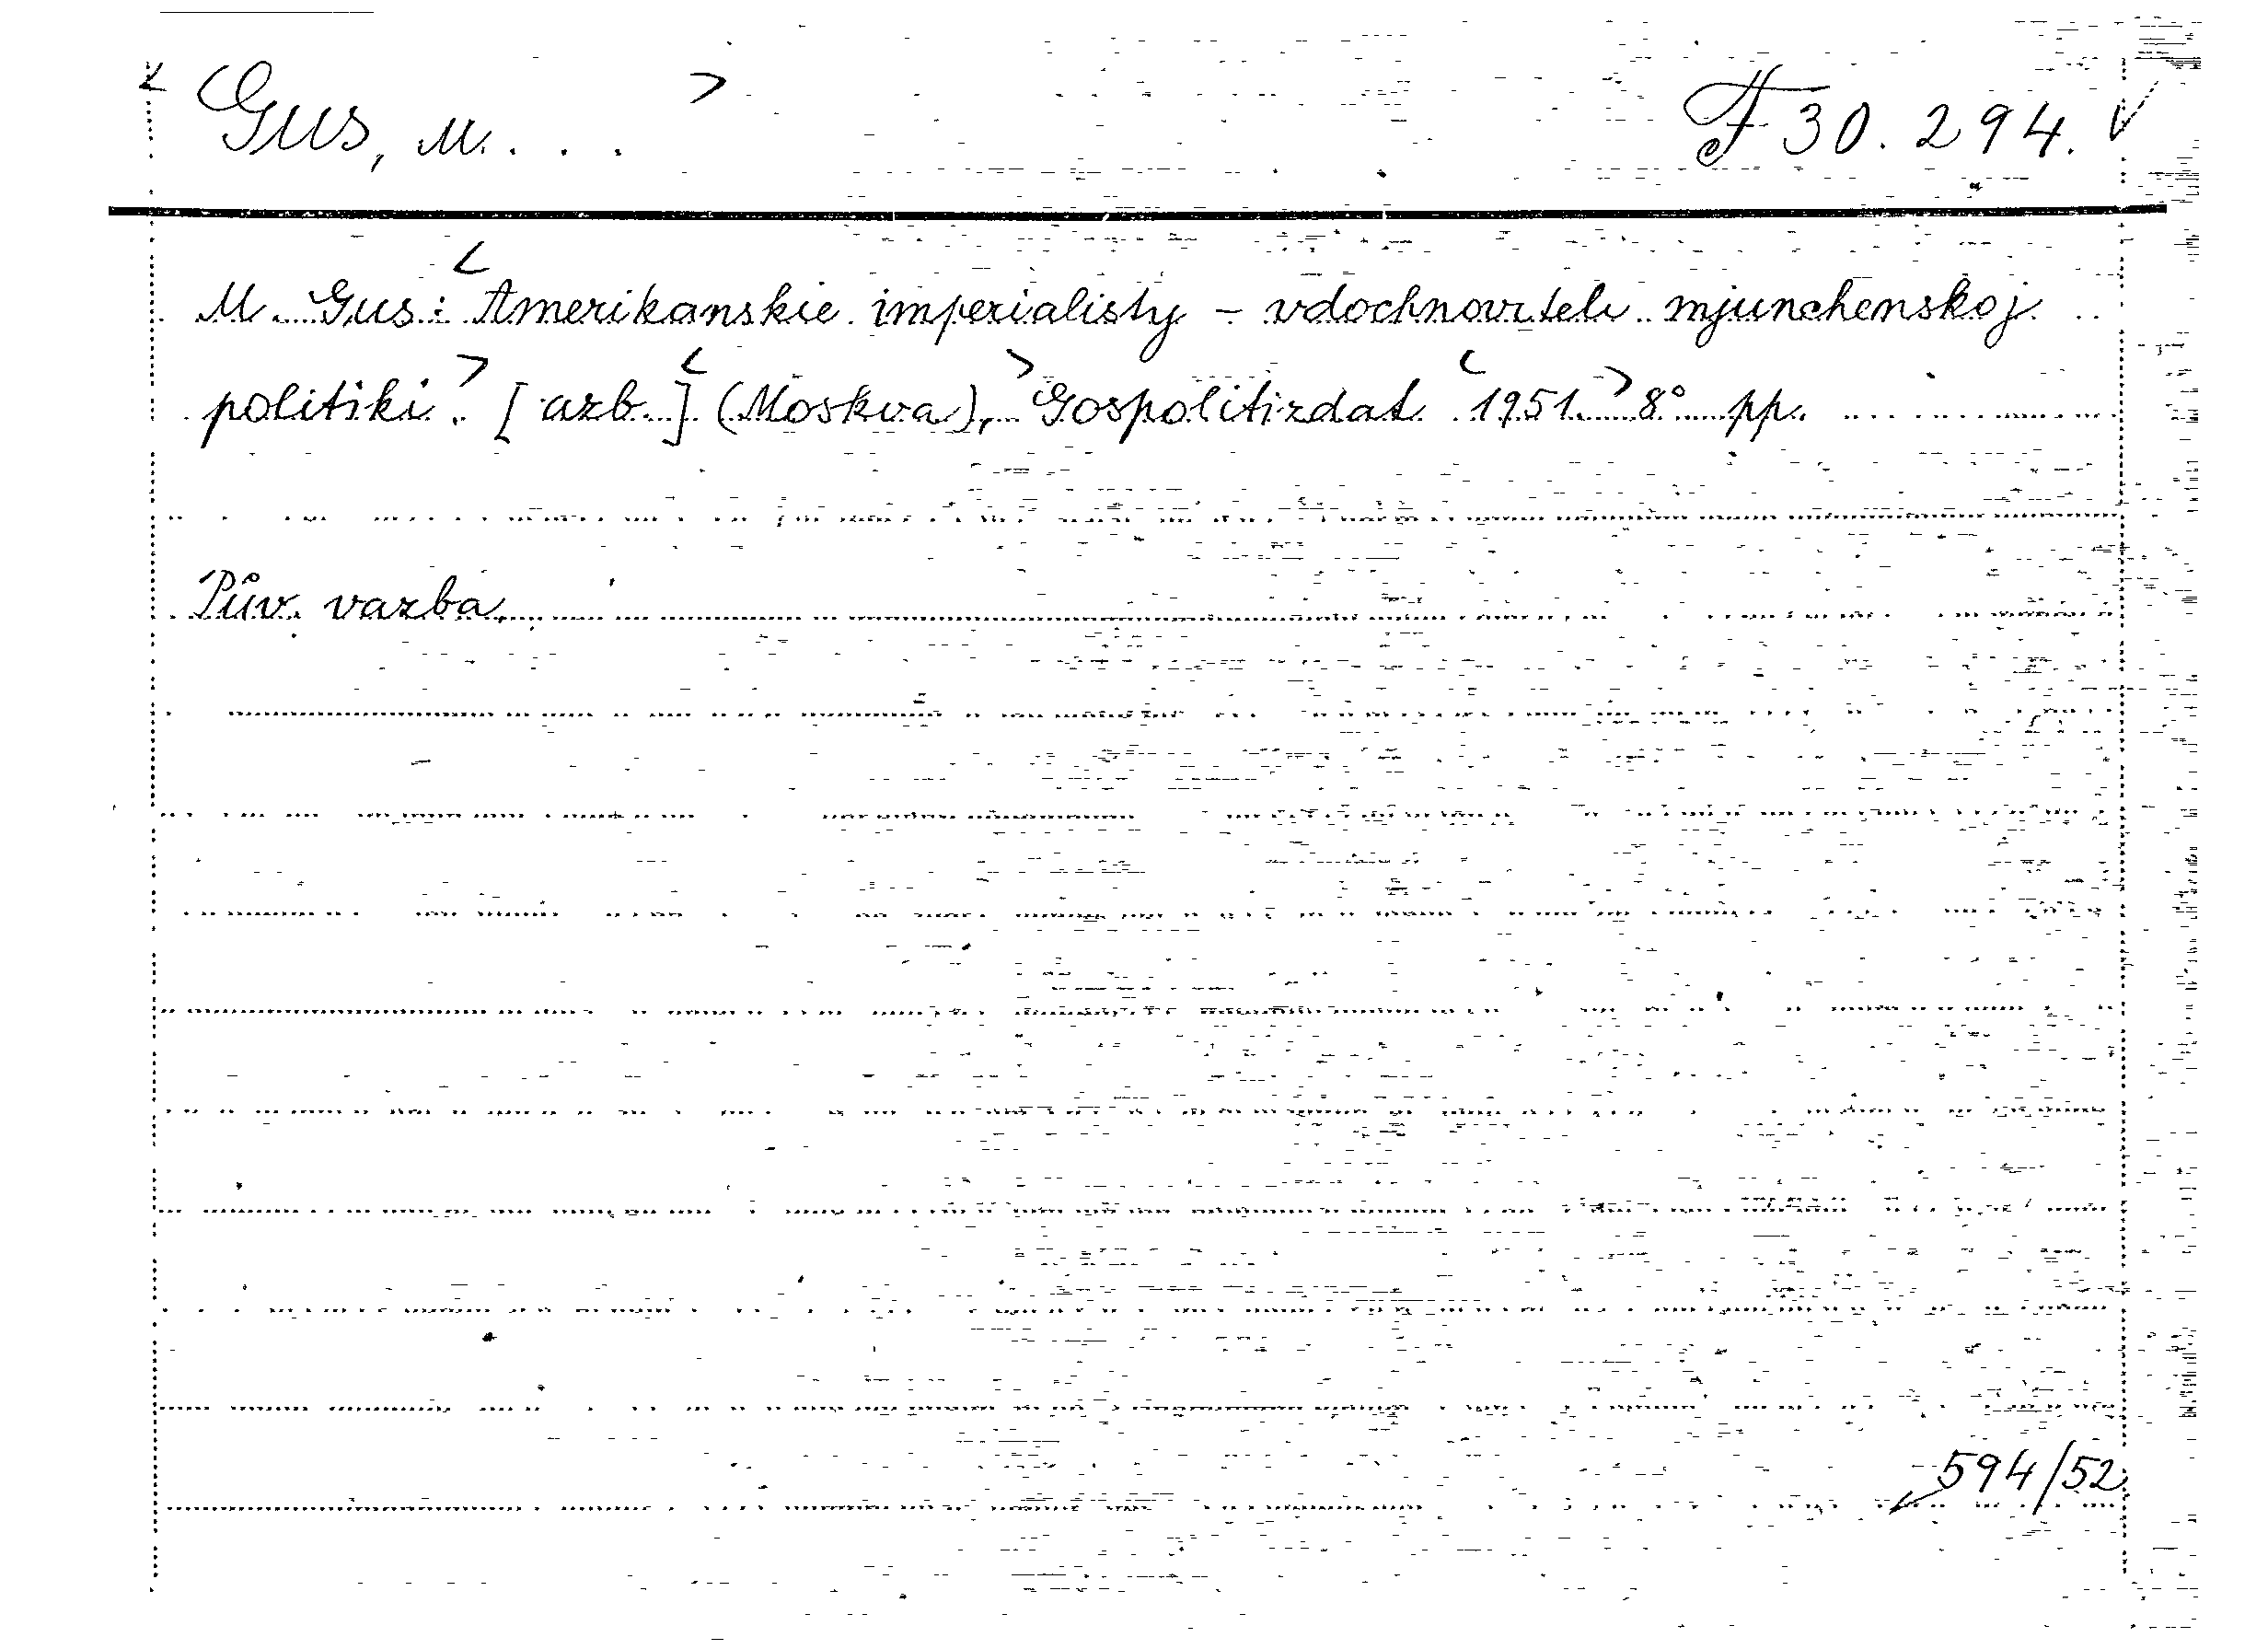 Gus, M. . . F 30.294.
M. Gus: Amerikanskie imperialisty – vdochnoviteli mjunchenskoj
politiki. [azb.] (Moskva), Gospolitizdat 1951. 8° pp.
Pův. vazba.
594/52